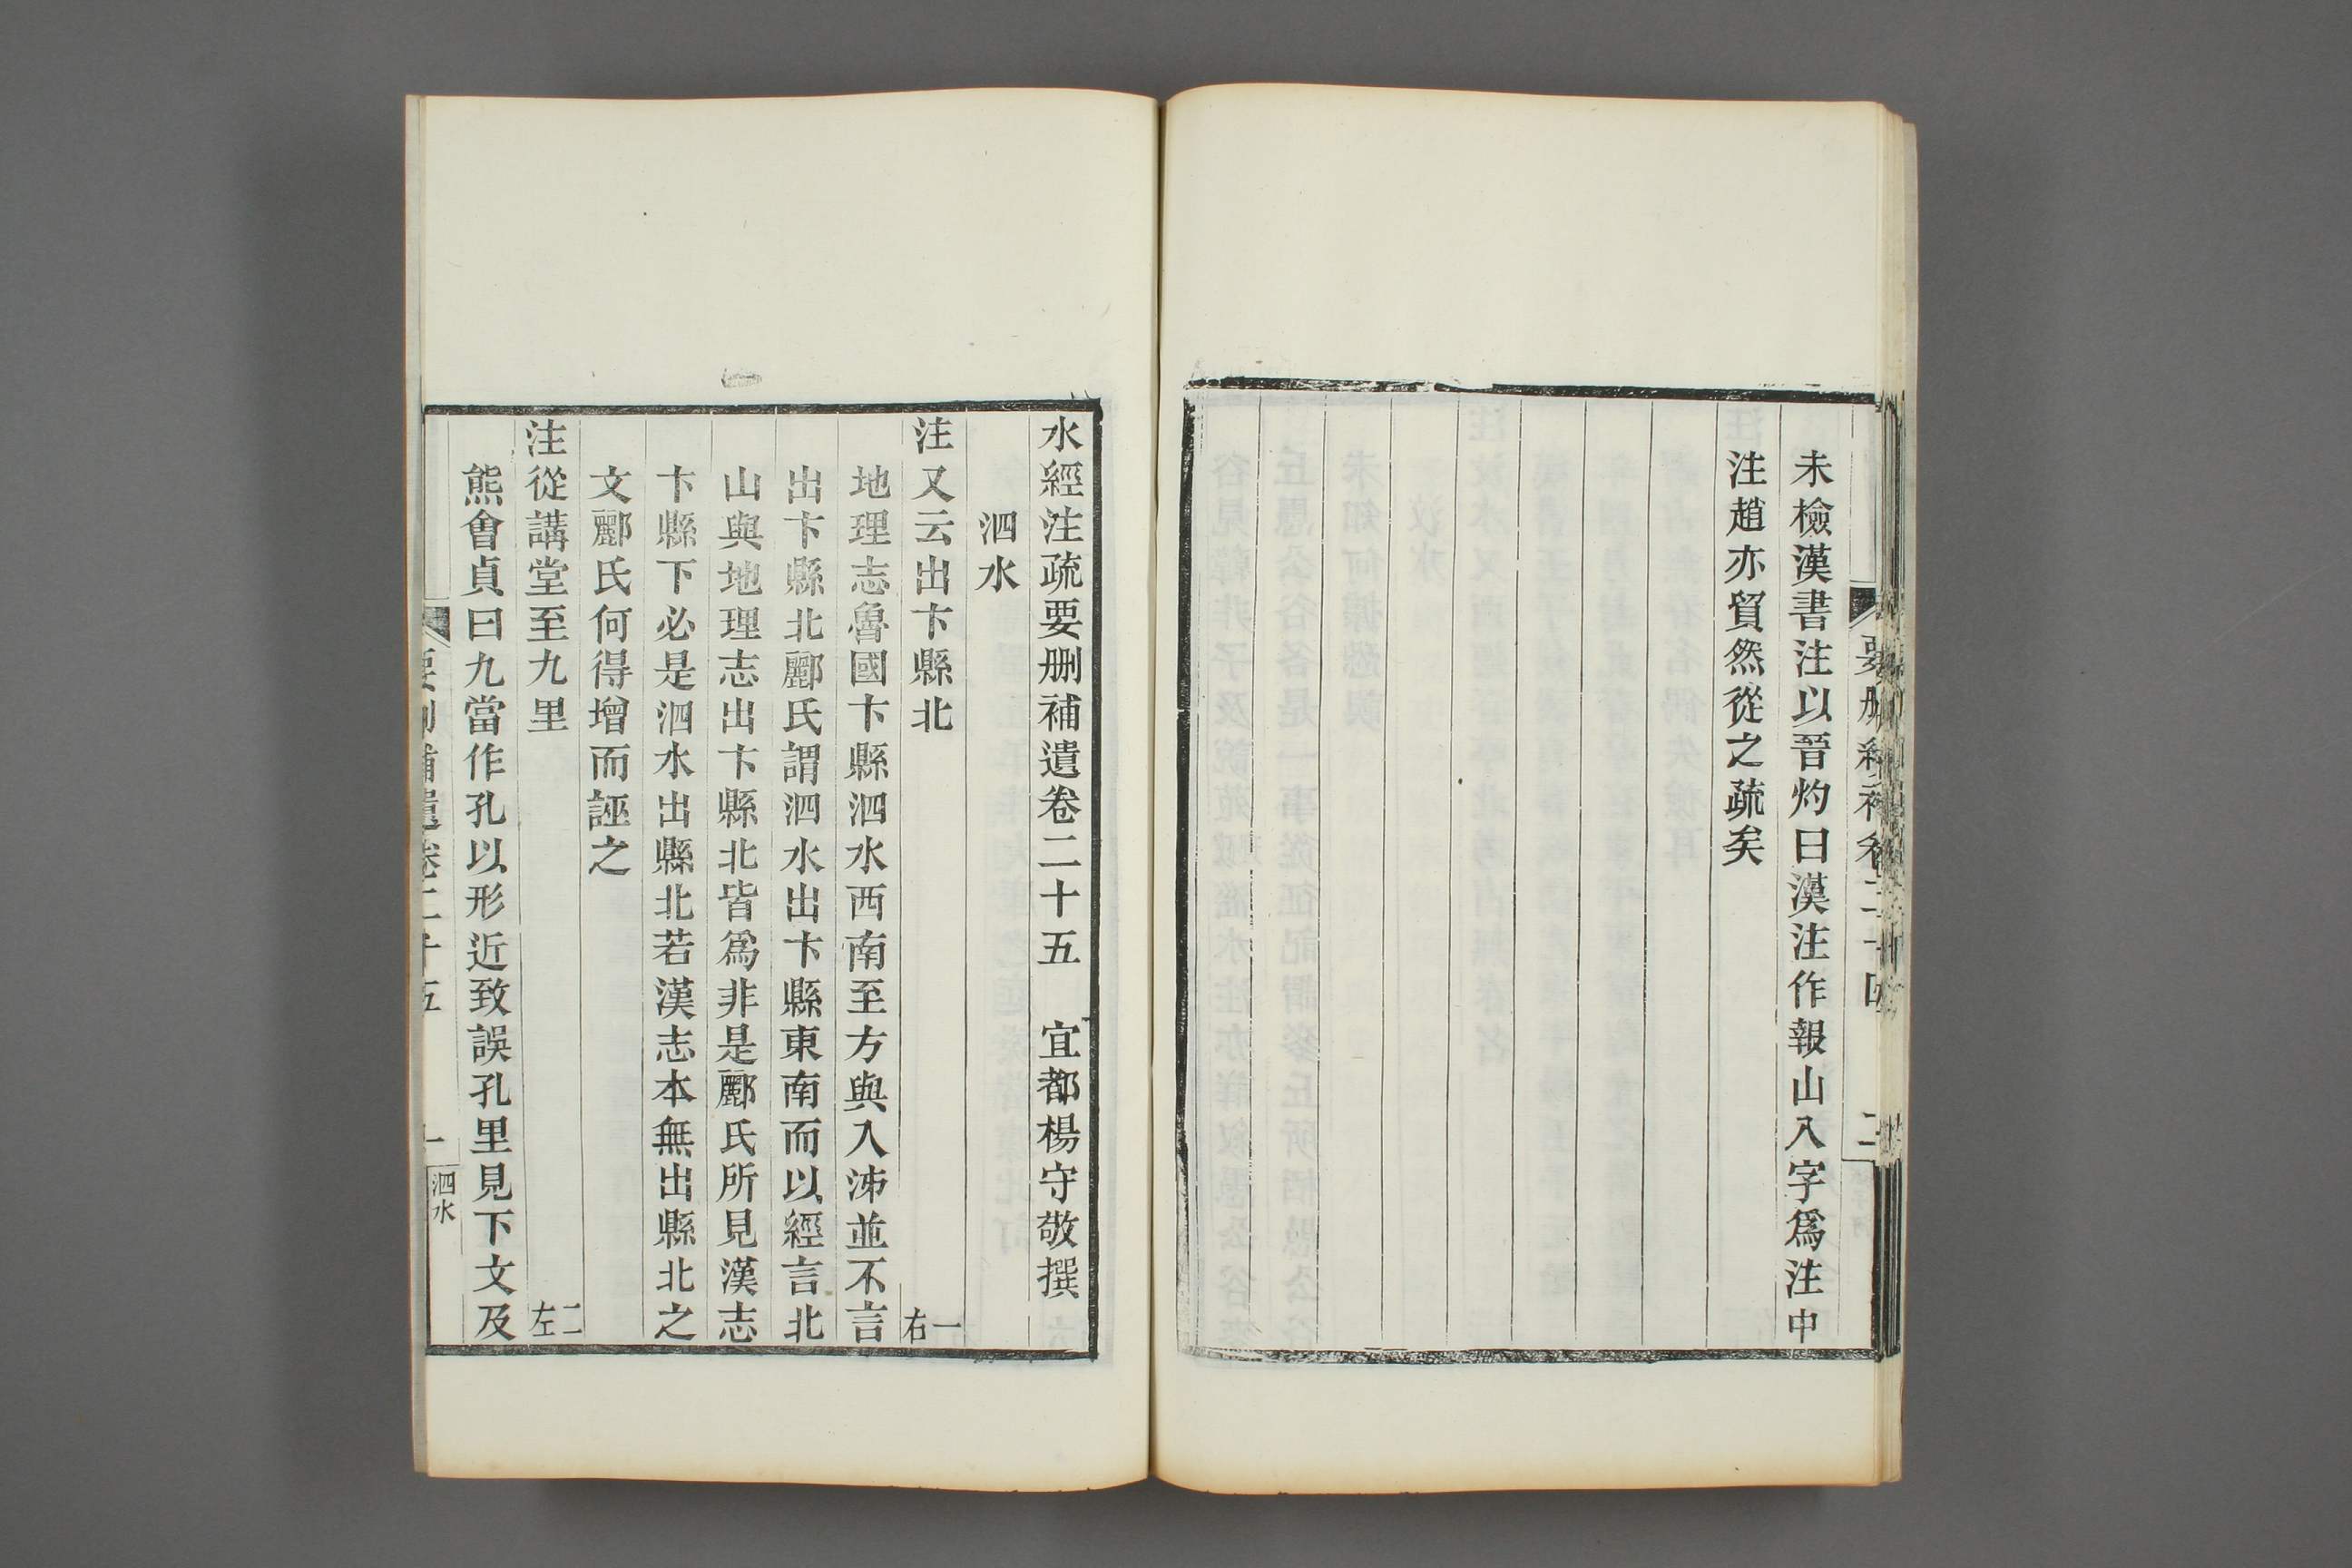 未檢漢書注以晉灼曰漢注作報山入字爲注中
注趙亦貿然從之疏矣
水經注疏要刪補遺卷二十五　宜都楊守敬撰
泗水
注又云出卞縣北　一右
地理志魯國卞縣泗水西南至方與入泲並不言
出卞縣北酈氏謂泗水出卞縣東南而以經言北
山與地理志出卞縣北皆爲非是酈氏所見漢志
卞縣下必是泗水出縣北若漢志本無出縣北之
文酈氏何得增而誣之
注從講堂至九里　二左
熊會貞曰九當作孔以形近致誤孔里見下文及
要刪補遺卷二十五　一　泗水